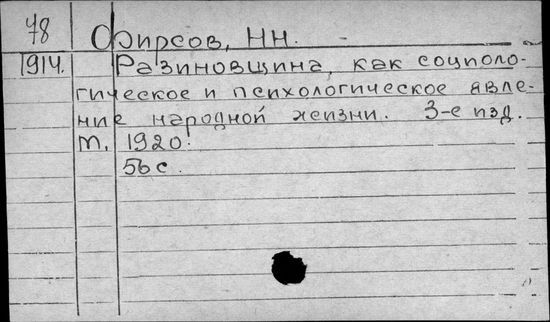 78
Фирсов, Н Н.
1914. Разиновщина, как социоло-
гическое и психологическое явле-
ние народной жизни. 3-е изд.
М, 1920.
56 с.